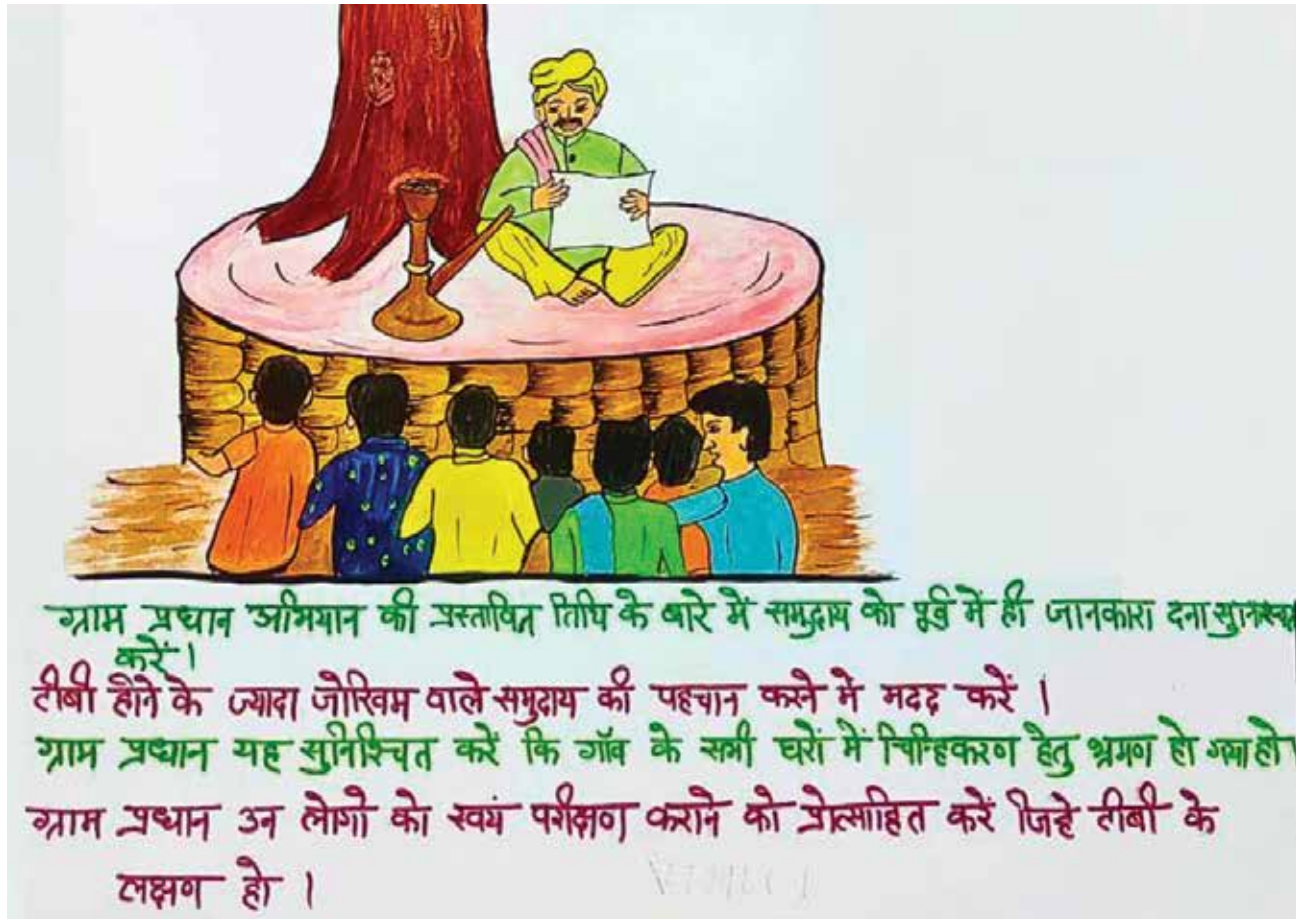 ग्राम प्रधान अभियान की प्रस्तावित तिथि के बारे में समुदाय को पूर्व में ही जानकारा दना
करें।
टीबी होने के ज्यादा जोखिम वाले समुदाय की पहचान करने में मदद करें।
ग्राम प्रधान यह सुनिश्चित करें कि गाँव के सभी घरों में चिन्हिकरण हेतु भ्रमण हो गया हो।
ग्राम प्रधान उन लोगो को स्वयं परीक्षण कराने को प्रोत्साहित करें जिहे टीबी के
लक्षण हो।